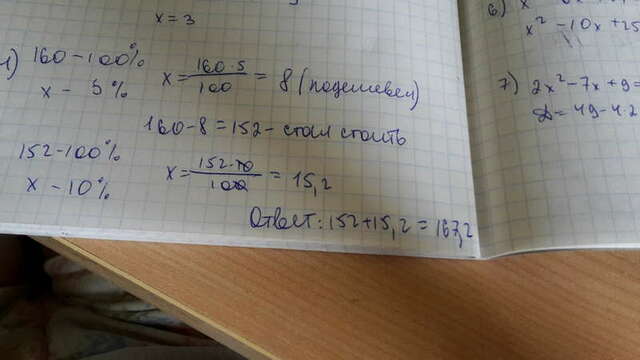 x = 3
1) 160 - 100%
x - 5% x = 160·5/100 = 8 (подешевел)
160-8 = 152 - стал стоить
152-100%
x - 10% x = 152·10/100 = 15,2
Ответ: 152+15,2 = 167,2
6) x
x² - 10x + 25
7) 2x² - 7x + 9 =
D = 49 - 4·2